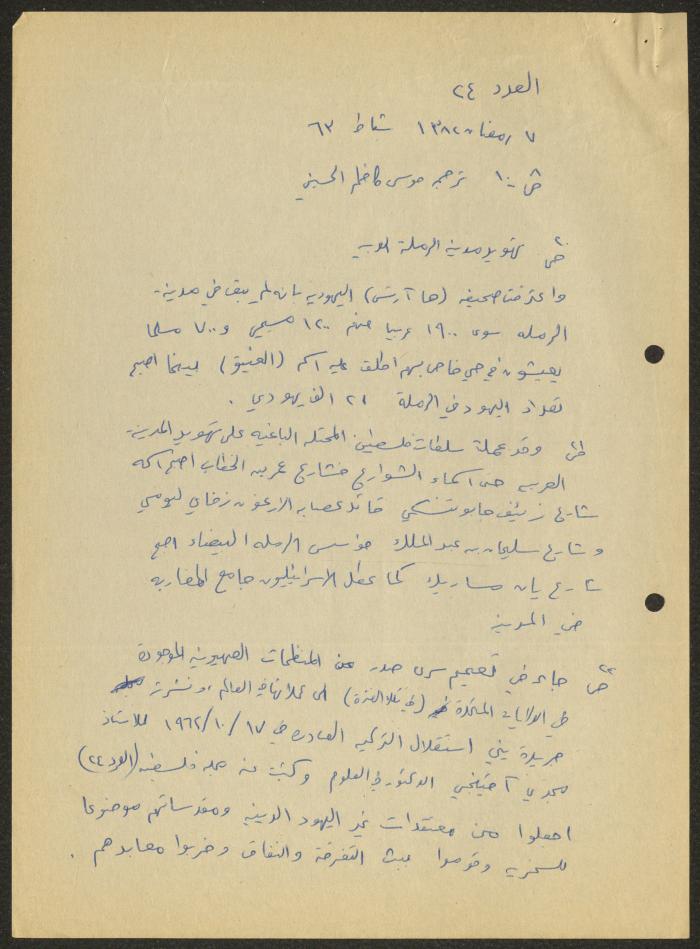 العدد ٢٤
٧ رمضان ١٣٨٢ شباط ٦٣
ص ١٠ ترجمة موسى كاظم الحسيني
ص تهويد مدينة الرملة العربية
واعترفت صحيفة (هاآرتس) اليهودية بانه لم يبق في مدينة
الرملة سوى ١٩٠٠ عربيا منهم ١٢٠٠ مسيحي و ٧٠٠ مسلما
يعيشون في حي خاص بهم اطلق عليه اسم (العتيق) بينما اصبح
تعداد اليهود في الرملة ٢١ الف يهودي .
وقد عملت سلطات فلسطين المحتلة الباغية على تهويد المدينة
العربية حتى اسماء الشوارع فشارع عمر بن الخطاب اصبح اسمه
شارع زئيف جابوتنسكي قائد عصابة الارغون زفاي ليومي
وشارع سليمان بن عبد الملك مؤسس الرملة البيضاء اصبح
شارع يان مساريك كما عطل الاسرائيليون جامع المغاربة
في المدينة
ص جاء في تعميم سري صدر عن المنظمات الصهيونية الموجودة
في الولايات المتحدة الى عملائها في العالم ونشرته
جريدة يني استقلال التركية الصادرة في ١٧/١٠/١٩٦٢ للاستاذ
الدكتور في العلوم وكتبت عنه مجلة فلسطين (العدد ٢٤)
اجعلوا من معتقدات غير اليهود الدينية ومقدساتهم موضوعا
للسخرية وقوموا ببث التفرقة والنفاق وخربوا معابدهم .